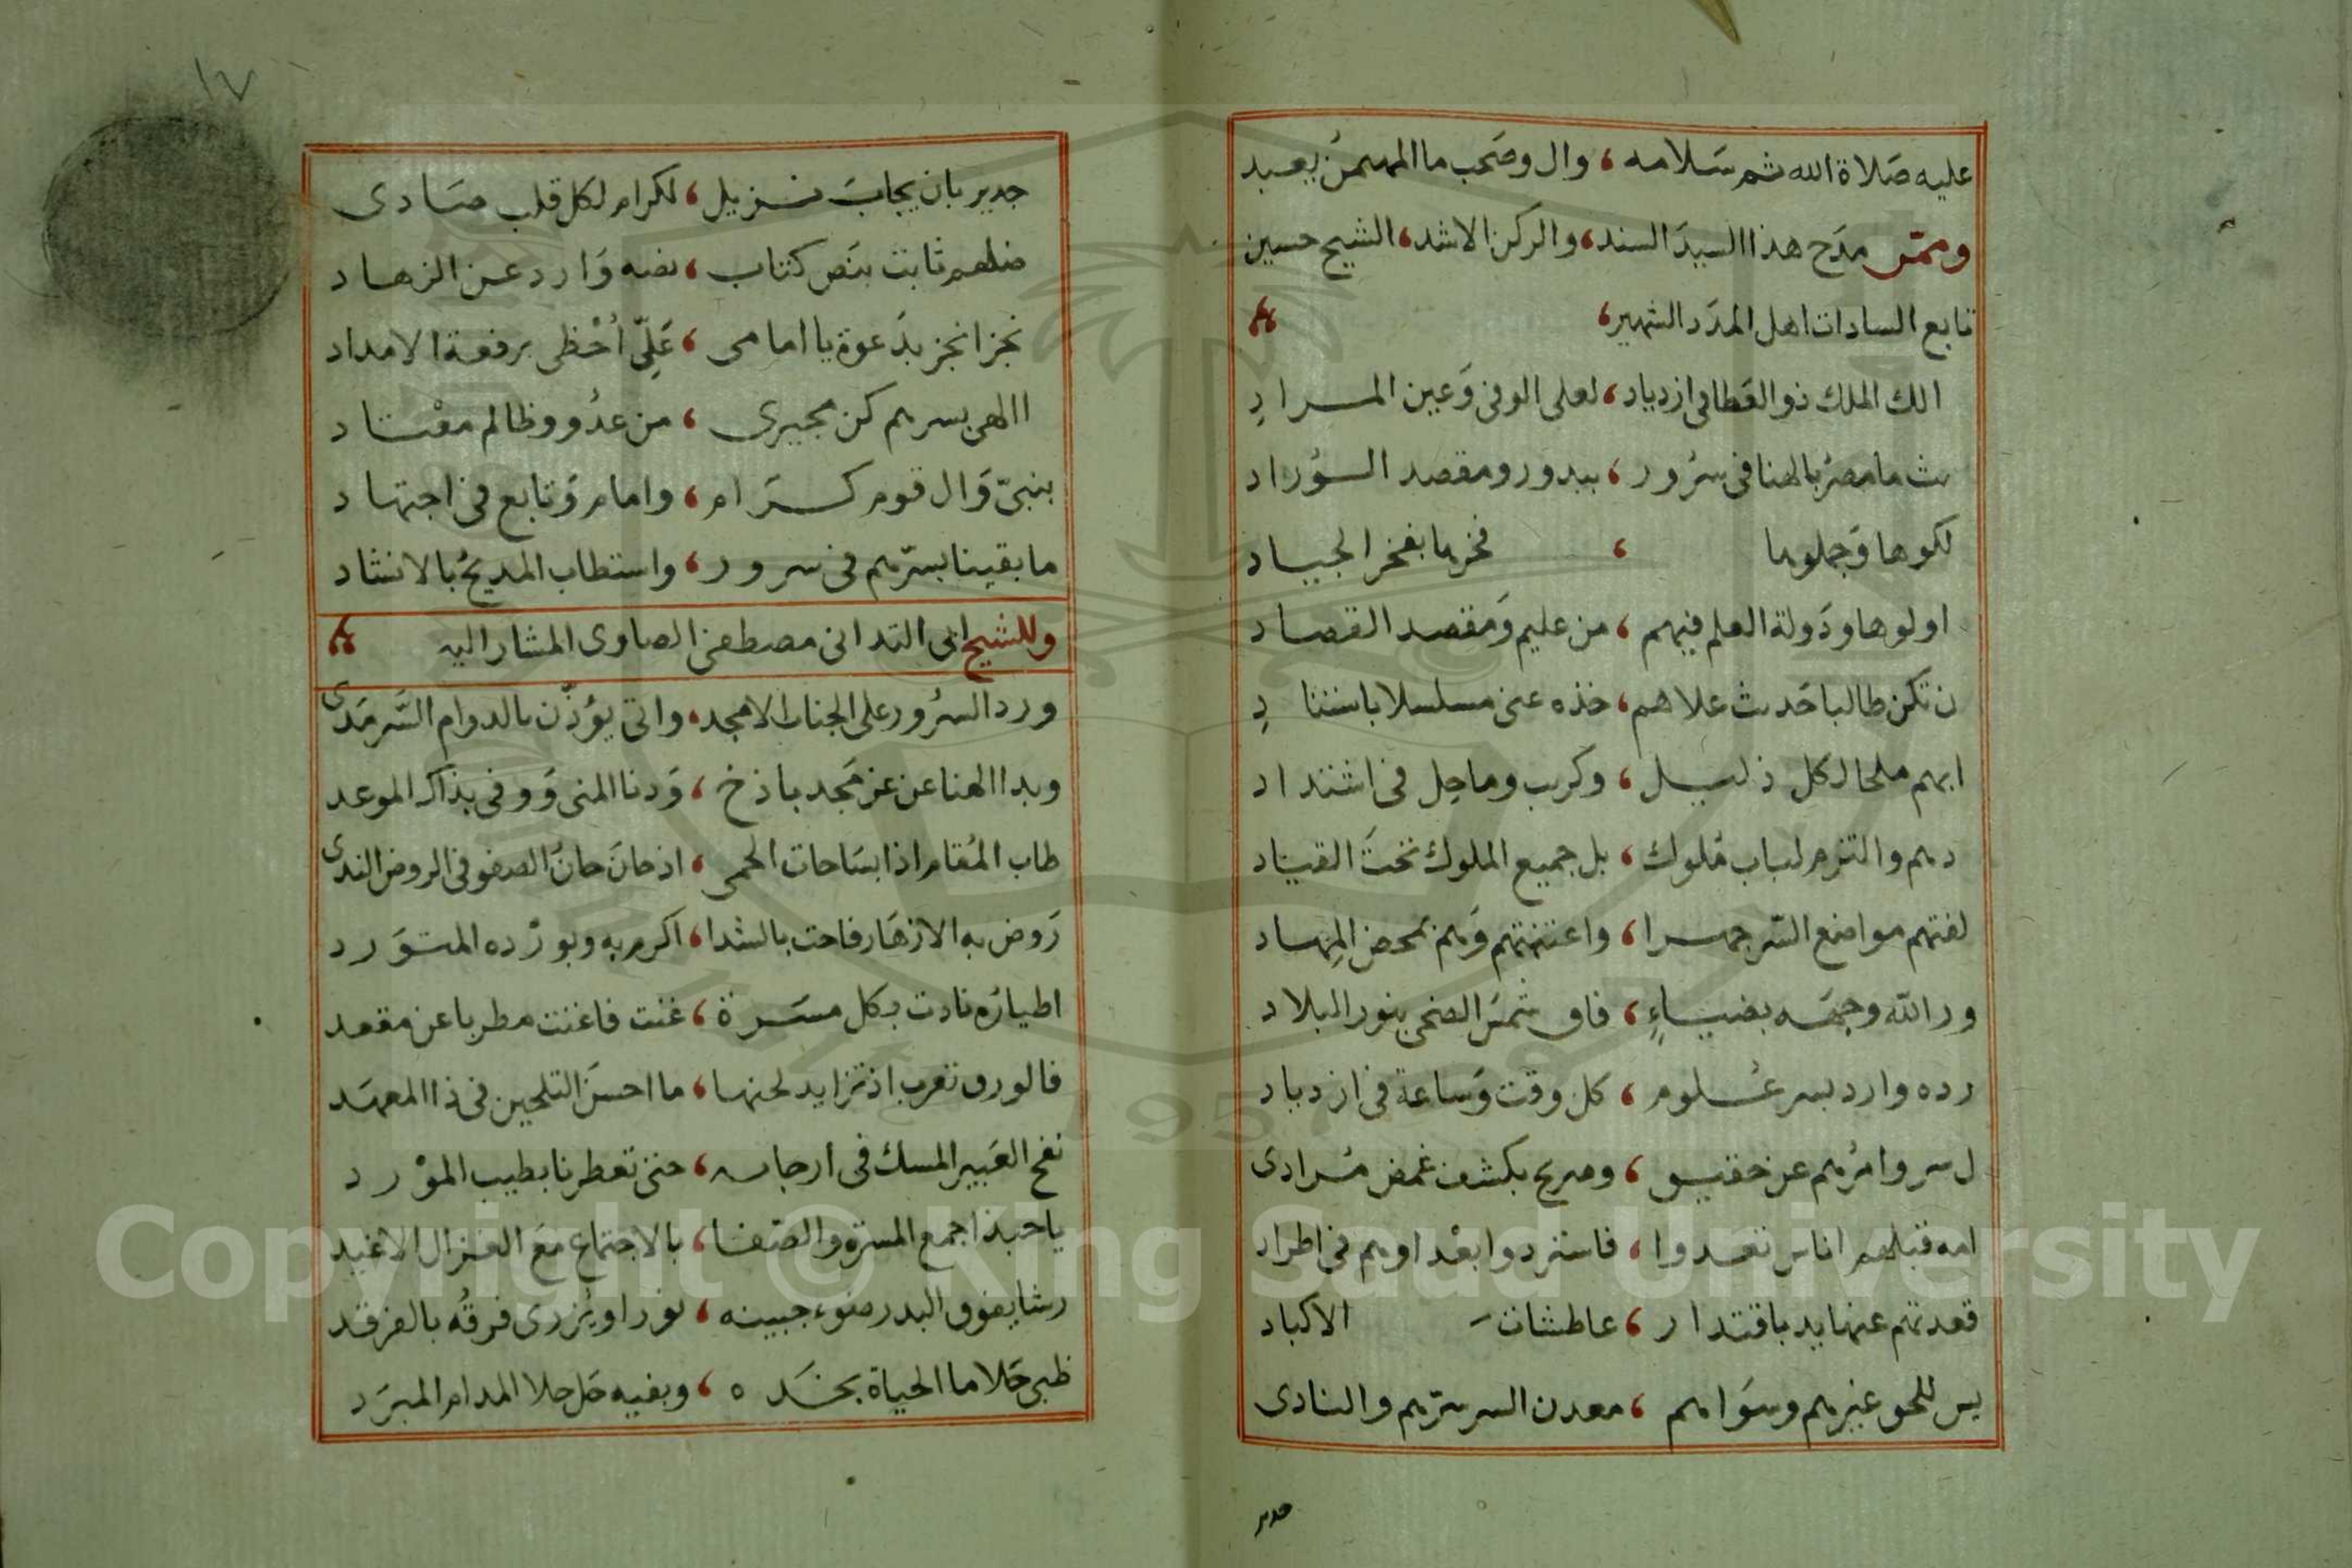 عليه صَلاة الله ثم سَلامه ، وال وصَحب ما المهيمنُ يعبد
وممّن مدَح هذا السيدَ السند، والركن الاشد، الشيخ حسين
تابع السادات اهل المدَد الشهير،
الك الملك ذو العَطا فى ازدياد ، لعلى الوفى وَعين المراد
ث ما مصرُ بالهنا فى سرُور ، ببدور ومقصد السوُراد
لكوها وَجملوها ، فخرها بفخر الجياد
اولوها ودَولة العلم فيهم ، من عليم وَمقصد القصاد
ن تكن طالبا حَديث علاهم ، خذه عنى مسلسلا باسنادِ
ابهم ملجا لكل ذليل ، وكرب وماحِل فى اشتداد
دهم والتزم لباب مُلوك ، بل جميع الملوك تحتَ القياد
لفتهم مواضع السّر جهرا ، واعتنتهم وَهم بمحض المِهاد
ور الله وجهَه بضياءٍ ، فاق شمسَ الضحى بنور البلاد
رده وارد بسر عُلوم ، كل وقت وَساعة فى ازدياد
ل سر وامرُهم عن حقيق ، وصريح بكشف غمض مُرادى
امه قبلهم اناس تعدوا ، فاستردوا بعْد اوهم فى اطراد
قعدتهم عنها يد باقتدار ، عاطشات الاكباد
يس للحق غيرهم وسوَاهم ، معدن السر سرّهم والنادى
جدير
١٧
جدير بان يجابَ نزيل ، لكرام لكل قلب صَادى
فضلهم ثابت بنَص كتاب ، نصه وَارد عن الزهاد
نجز انجز بدَعوة يا امامى ، عَلِّى اُحْظى برفعة الامداد
االهى بسرهم كن مجيرى ، من عدُو وظالم معْتاد
بنبىّ وَال قوم كرَام ، وامام وَتابع فى اجتهاد
ما بقينا بسرّهم فى سرور ، واستطاب المديحُ بالانشاد
وللشيخ ابى التدانى مصطفى الصاوى المشار اليه
ورد السرُور على الجناب الامجد ، واتى يؤذّن بالدوام السَّرمَدى
وبدا الهنا عن عز مَجد باذخ ، وَدنا المنى وَوفى بذاك الموعد
طاب المُقام اذا بسَاحات الحمى ، اذ حانَ حانُ الصفو فى الروض الندى
رَوض به الازهَار فاحت بالشذا ، اكرم به وبورْده المتوَرد
اطيارُه نادت بكل مسَرة ، غنت فاغنت مطربا عن مقعد
فالورق تعرب اذ تزايد لحنها ، ما احسَن التلحين فى ذا المعهَد
نفح العَبير المسك فى ارجائه ، حتى تعطرنا بطيب الموْرد
ياحبذا جمع المسرّة والصَفا ، بالاجتماع معَ الغزال الاغيد
رشا يفوق البدر ضوء جبينه ، نورا ويُزرى فرقُه بالفرقد
ظبى حَلا ما الحياة بخَده ، وبفيه حَل حلا المدام المبرَد
Copyright © King Saud University
1957